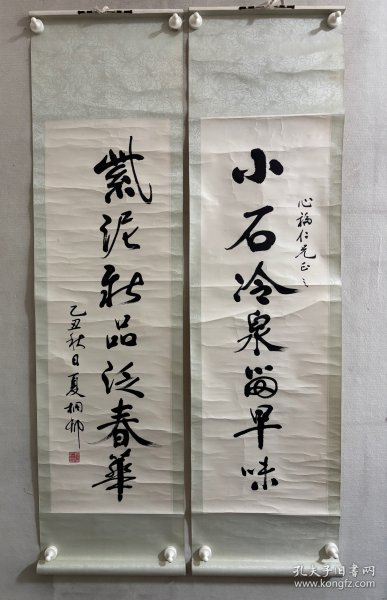 小石冷泉留早味
仁兄正之
紫泥新品泛春華
乙丑秋日夏桐
孔夫子旧书网
www.kongfz.com